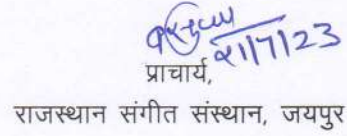 21/7/23
प्राचार्य,
राजस्थान संगीत संस्थान, जयपुर